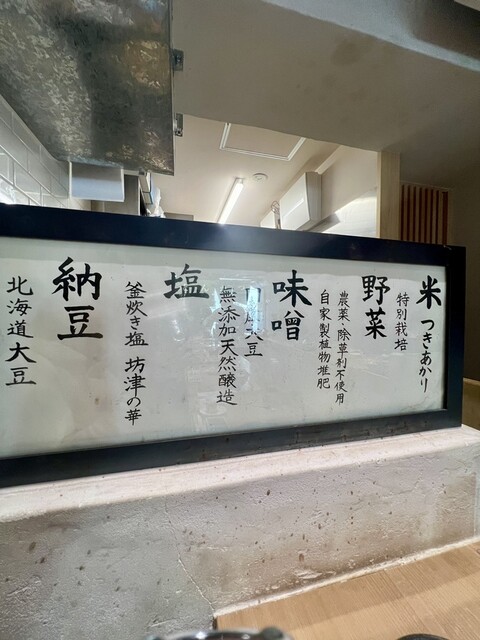 米 つきあかり
特別栽培
野菜
農薬、除草剤不使用
自家製植物堆肥
味噌
大豆
無添加天然醸造
塩
釜炊き塩 坊津の華
納豆
北海道大豆